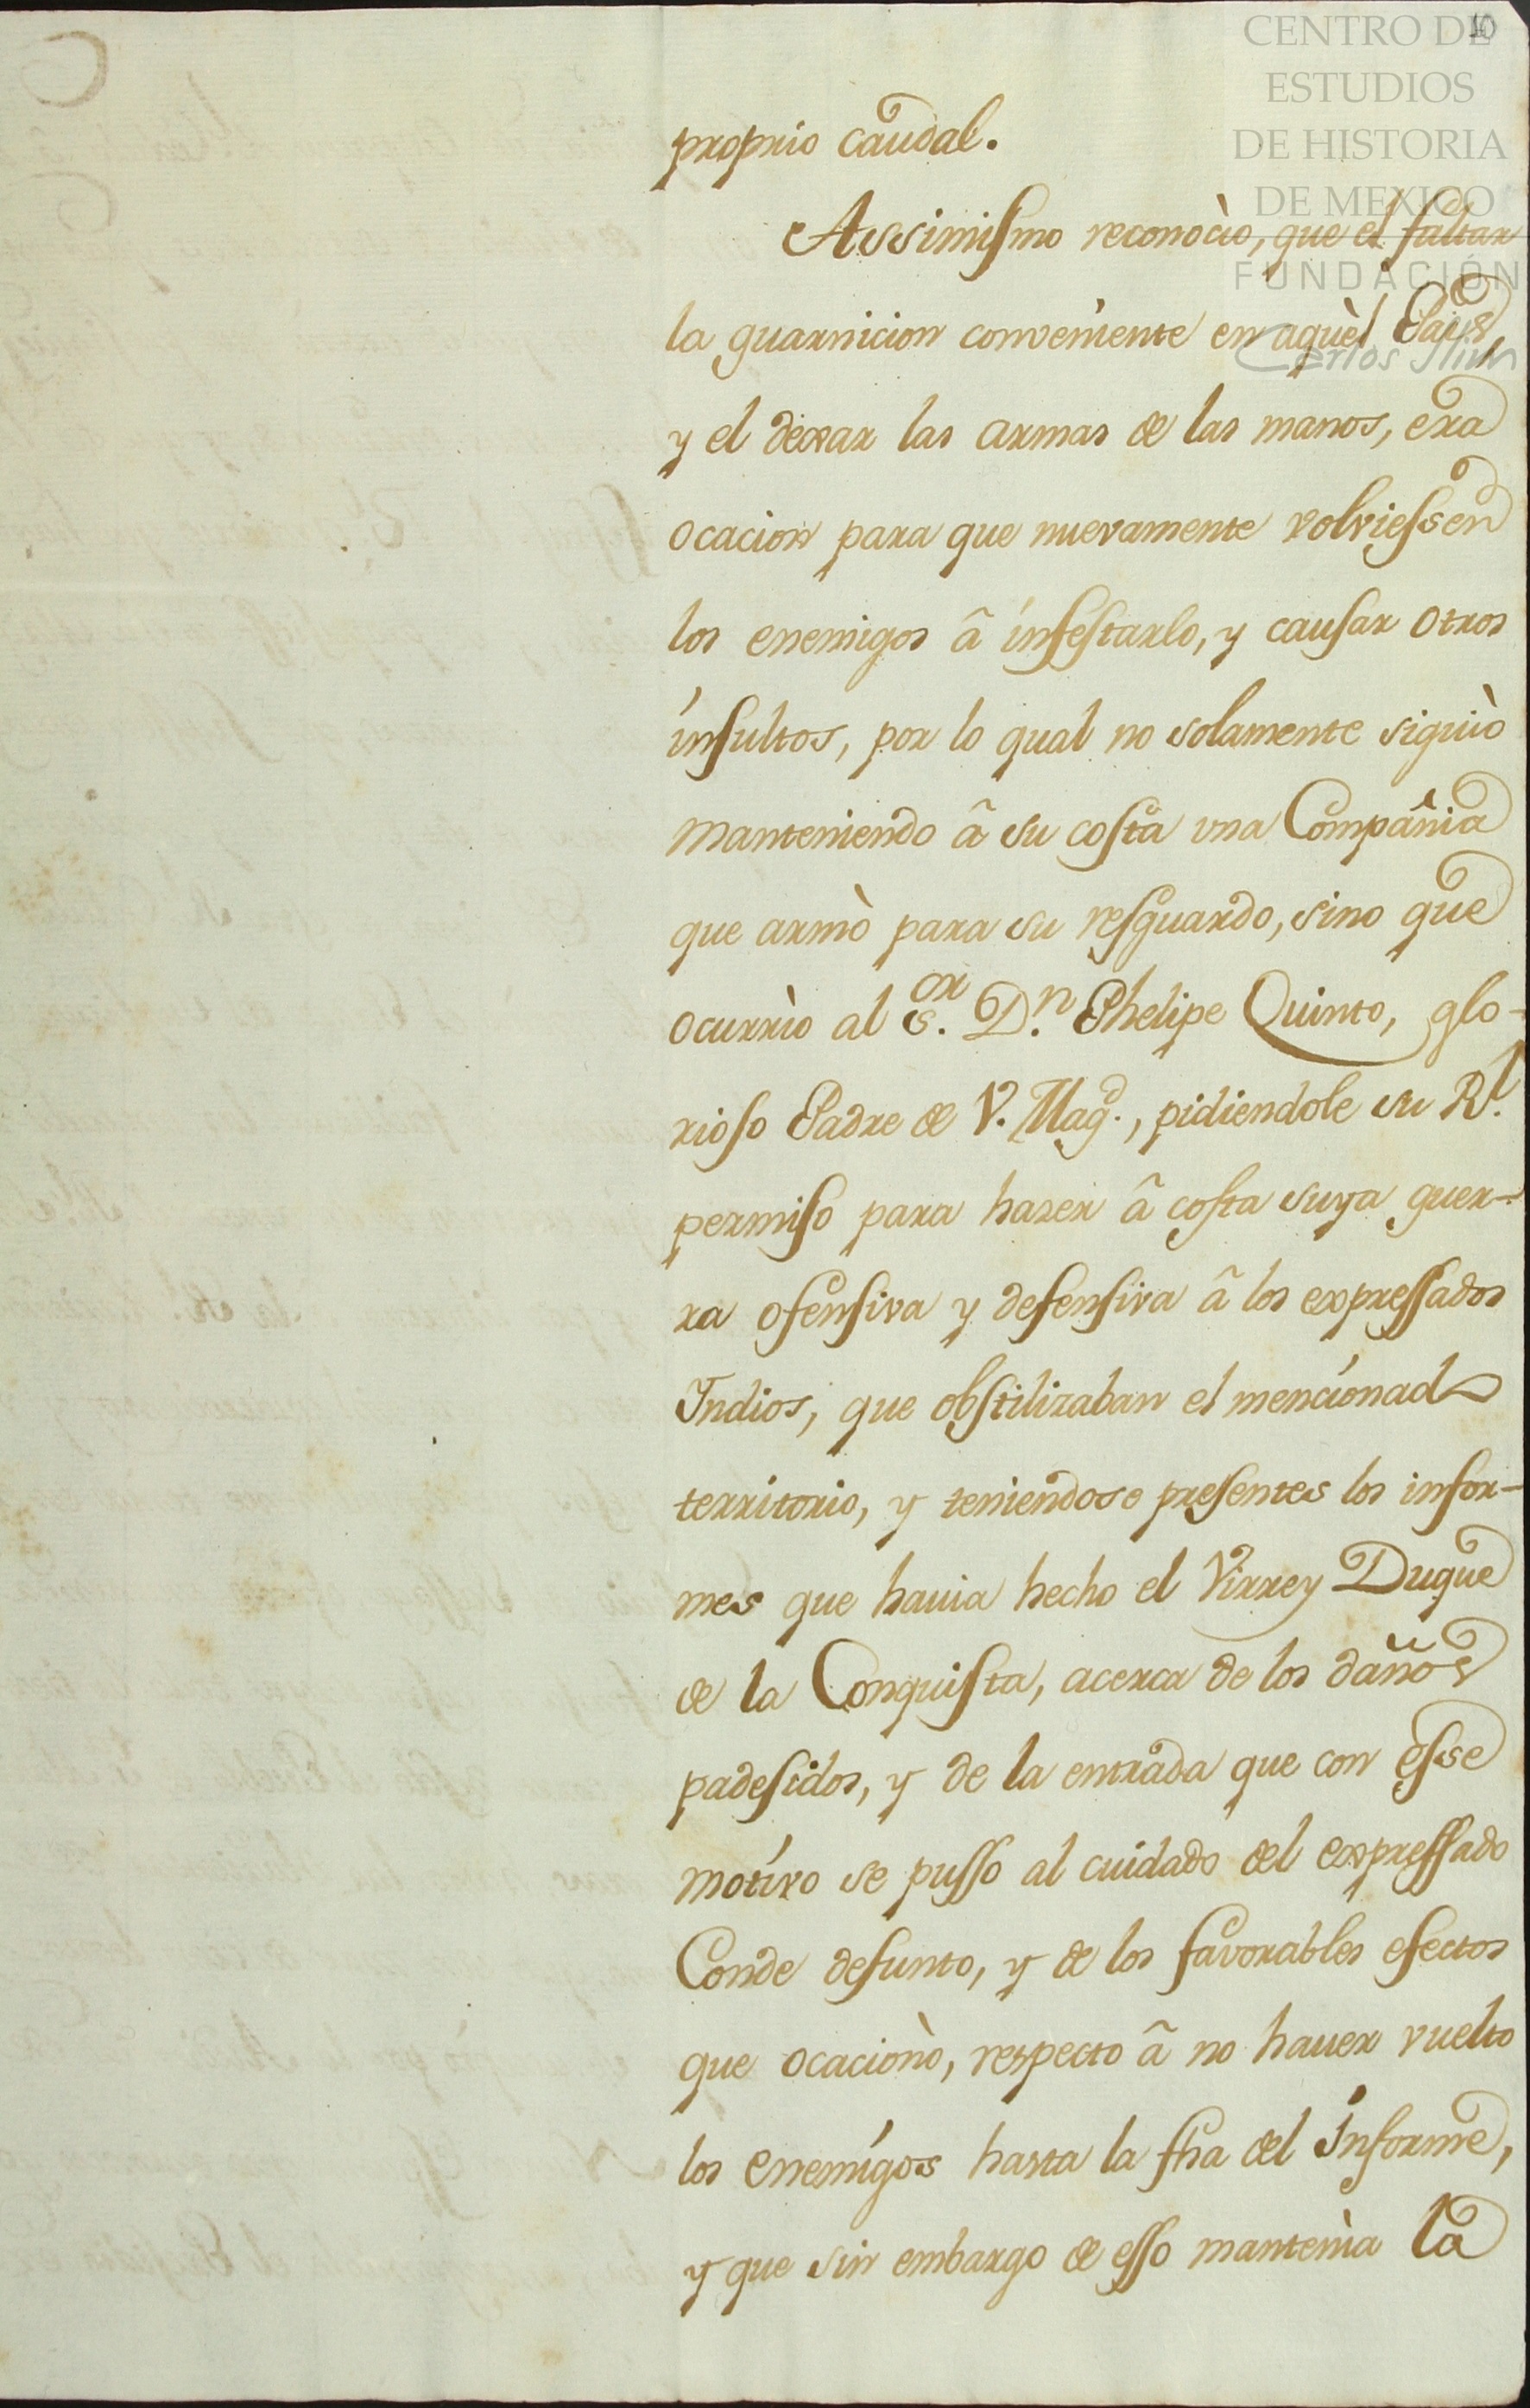 10
CENTRO DE
ESTUDIOS
DE HISTORIA
DE MEXICO
FUNDACIÓN
Carlos Slim
proprio caudal.
Assimismo reconociò, que el faltar
la guarnicion conveniente en aquèl Pais,
y el dexar las armas de las manos, era
ocacion para que nuevamente volviessen
los enemigos â infestarlo, y causar otros
insultos, por lo qual no solamente siguiò
manteniendo â su costa una Compañia
que armò para su resguardo, sino que
ocurrìo al S.or D.n Phelipe Quinto, glo-
rioso Padre de V. Mag.d, pidiendole su R.l
permiso para hazer â costa suya guer-
ra ofensiva y defensiva â los expressados
Indios, que obstilizaban el mencionado
territorio, y teniendose presentes los infor-
mes que havia hecho el Virrey Duque
de la Conquista, acerca de los daños
padesidos, y de la entrada que con esse
motivo se pusso al cuidado del expressado
Conde defunto, y de los favorables efectos
que ocacionò, respecto â no haver vuelto
los enemigos hasta la fha del Informe,
y que sin embargo de esso mantenìa la